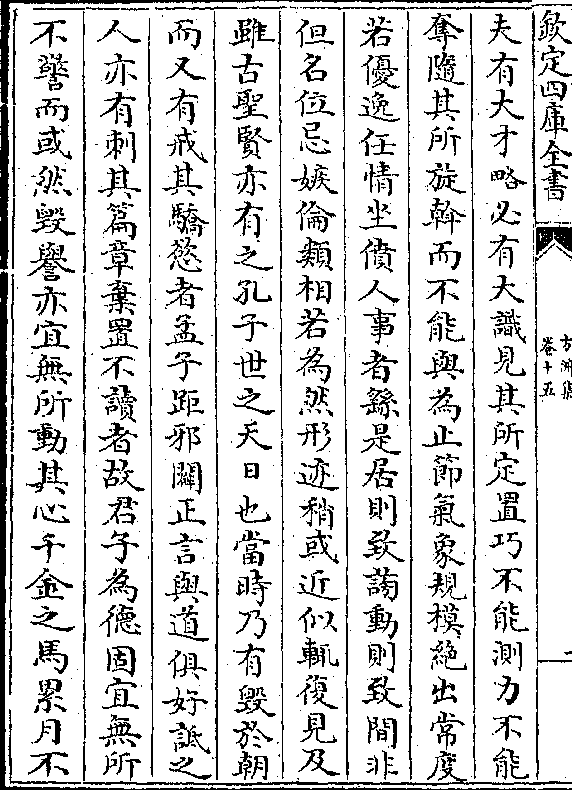 欽定四庫全書
方洲集
卷十五
一
夫有大才略必有大識見其所定置巧不能測力不能
奪隨其所旋斡而不能與為止節氣象規模絶出常度
若優逸任情坐僨人事者繇是居則致謗動則致間非
但名位忌嫉倫類相若為然形迹稍或近似輒復見及
雖古聖賢亦有之孔子世之天日也當時乃有毀於朝
而又有戒其驕慾者孟子距邪闢正言與道俱好詆之
人亦有刺其篇章棄置不讀者故君子為德固宜無所
不譽而或然毀譽亦宜無所動其心千金之馬累月不